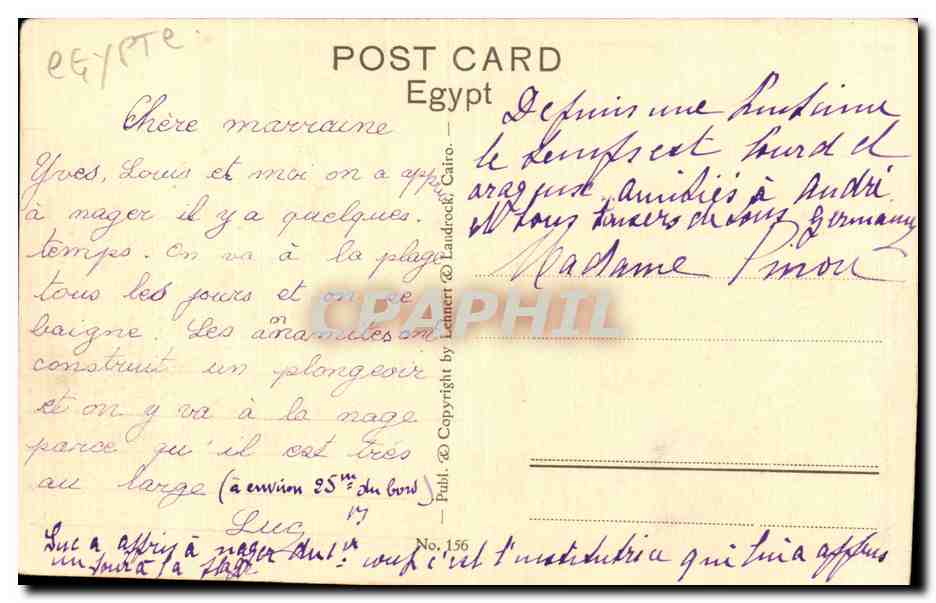 EGYPTE.
POST CARD
Egypt
Chère marraine
Yves, Louis et moi on a appri
à nager il y a quelques.
temps. On va à la plage
tous les jours et on se
baigne. Les annamites ont
construit un plongeoir
et on y va à la nage
parce qu'il est très
au large (à environ 25m du bord)
Luc
Luc a appris à nager du 1er coup c'est l'institutrice qui lui a appris
un jour à la plage
— Publ. & Copyright by Lehnert & Landrock, Cairo. —
No. 156
Depuis une
le temps est lourd et
amitiés à André.
tous baisers de tous Germaine
Madame Pinot
CPAPHIL